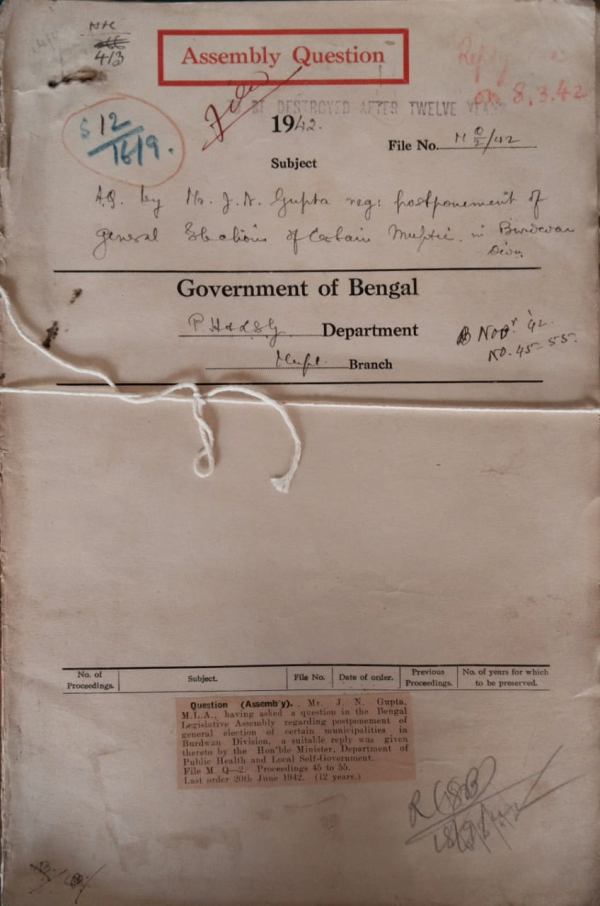 413
Assembly Question
on 8.3.42
BE DESTROYED AFTER TWELVE YEARS
S 12/16/9.
1942.
File No. M Q/2/42
Subject
A.Q. by Mr. J. N. Gupta reg: postponement of
general Elections of Certain Muptie. in Burdwan
Divn.
Government of Bengal
P H & L S G Department
Mupl. Branch
B Novr. '42
No. 45-55.
No. of Proceedings. Subject. File No. Date of order. Previous Proceedings. No. of years for which to be preserved.
Question (Assembly). Mr. J. N. Gupta,
M.L.A., having asked a question in the Bengal
Legislative Assembly regarding postponement of
general election of certain municipalities in
Burdwan Division, a suitable reply was given
thereto by the Hon'ble Minister, Department of
Public Health and Local Self-Government.
File M. Q—2. Proceedings 45 to 55.
Last order 20th June 1942. (12 years.)